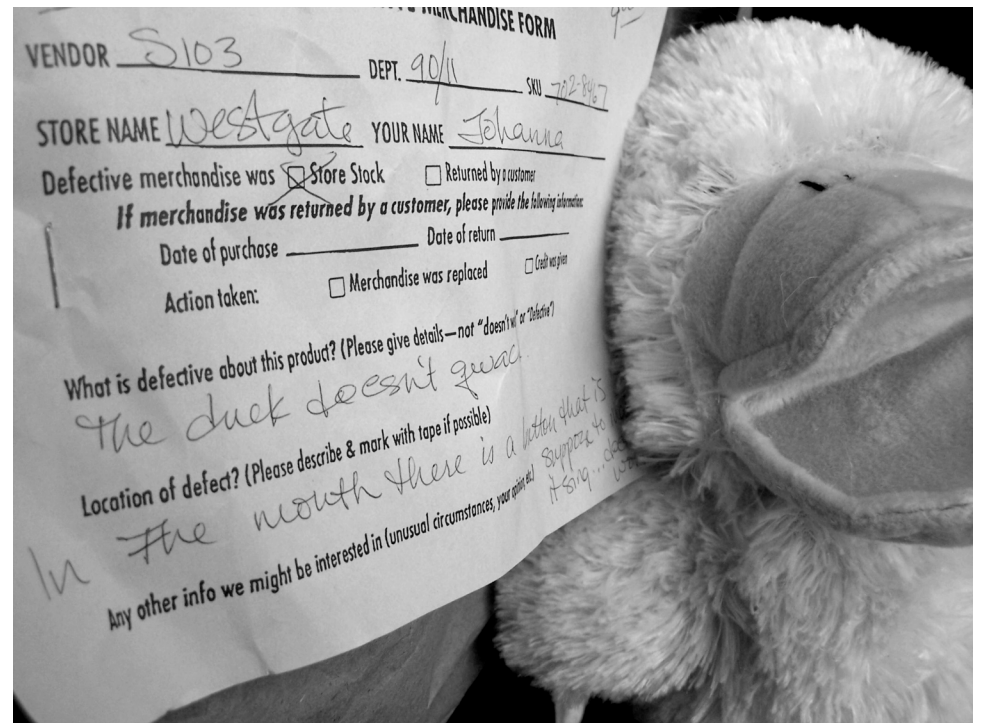 MERCHANDISE FORM
VENDOR S103 DEPT. 90/11 SKU 702-8467
STORE NAME Westgate YOUR NAME Johanna
Defective merchandise was Store Stock Returned by a customer
If merchandise was returned by a customer, please provide the following information:
Date of purchase Date of return
Action taken: Merchandise was replaced Credit was given
What is defective about this product? (Please give details—not "doesn't w" or "Defective")
The duck doesn't quac
Location of defect? (Please describe & mark with tape if possible)
In the mouth there is a button that is
suppose to
it sing...
Any other info we might be interested in (unusual circumstances, your opinion etc)